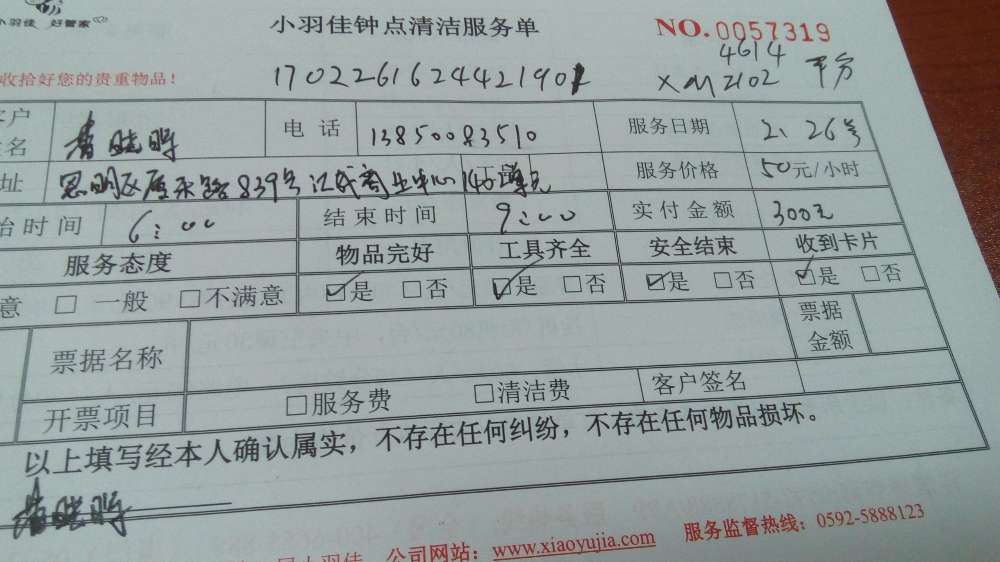 小羽佳 好管家
小羽佳钟点清洁服务单
NO.0057319
收拾好您的贵重物品！
4614
XM2102 平分
客户
签名
电 话
13850083510
服务日期
2、26号
址
思明区厦禾路839号
服务价格
50元/小时
始时间
6:00
结束时间
9:00
实付金额
300元
服务态度
物品完好
工具齐全
安全结束
收到卡片
意 □ 一般 □不满意
☑是 □否
☑是 □否
☑是 □否
☑是 □否
票据名称
票据
金额
开票项目
□服务费
□清洁费
客户签名
以上填写经本人确认属实，不存在任何纠纷，不存在任何物品损坏。
小羽佳 公司网站：www.xiaoyujia.com 服务监督热线：0592-5888123